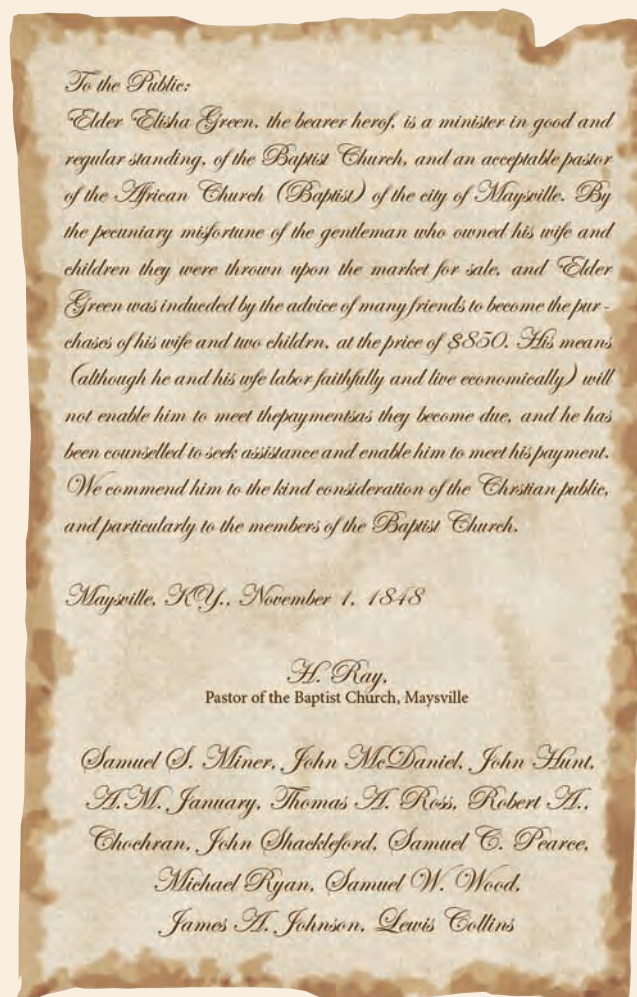 To the Public:
Elder Elisha Green, the bearer herof, is a minister in good and
regular standing, of the Baptist Church, and an acceptable pastor
of the African Church (Baptist) of the city of Maysville. By
the pecuniary misfortune of the gentleman who owned his wife and
children they were thrown upon the market for sale, and Elder
Green was indueded by the advice of many friends to become the pur-
chases of his wife and two childrn, at the price of $850. His means
(although he and his wfe labor faithfully and live economically) will
not enable him to meet thepaymentsas they become due, and he has
been counselled to seek assistance and enable him to meet his payment.
We commend him to the kind consideration of the Chrstian public,
and particularly to the members of the Baptist Church.
Maysville, KY., November 1, 1848
H. Ray,
Pastor of the Baptist Church, Maysville
Samuel S. Miner, John McDaniel, John Hunt,
A.M. January, Thomas A. Ross, Robert A.,
Chochran, John Shackleford, Samuel C. Pearce,
Michael Ryan, Samuel W. Wood,
James A. Johnson, Lewis Collins